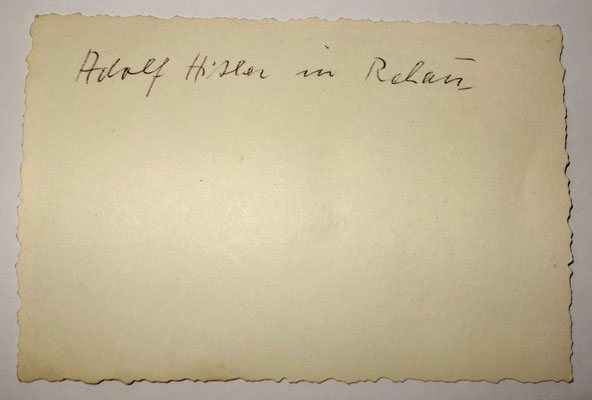 Adolf Hitler in Rehau